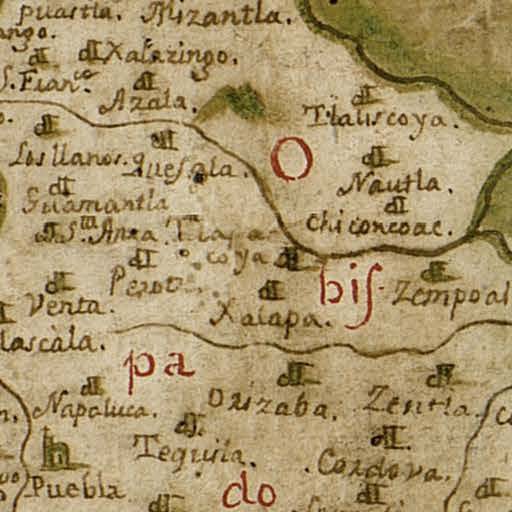 puastla. Mizantla.
ango.
Xalazingo.
S. Franco.
Azala.
Tlaliscoya.
Los llanos. Quesala.
O
Nautla.
Guamantla
Chiconcoac.
S.ta Anna. Tlapa
coya
Perote
bis
Zempoal
Venta.
Xalapa.
lascàla.
pa
Napaluca.
Orizaba. Zentla.
Tequila.
Cordova.
Puebla
do